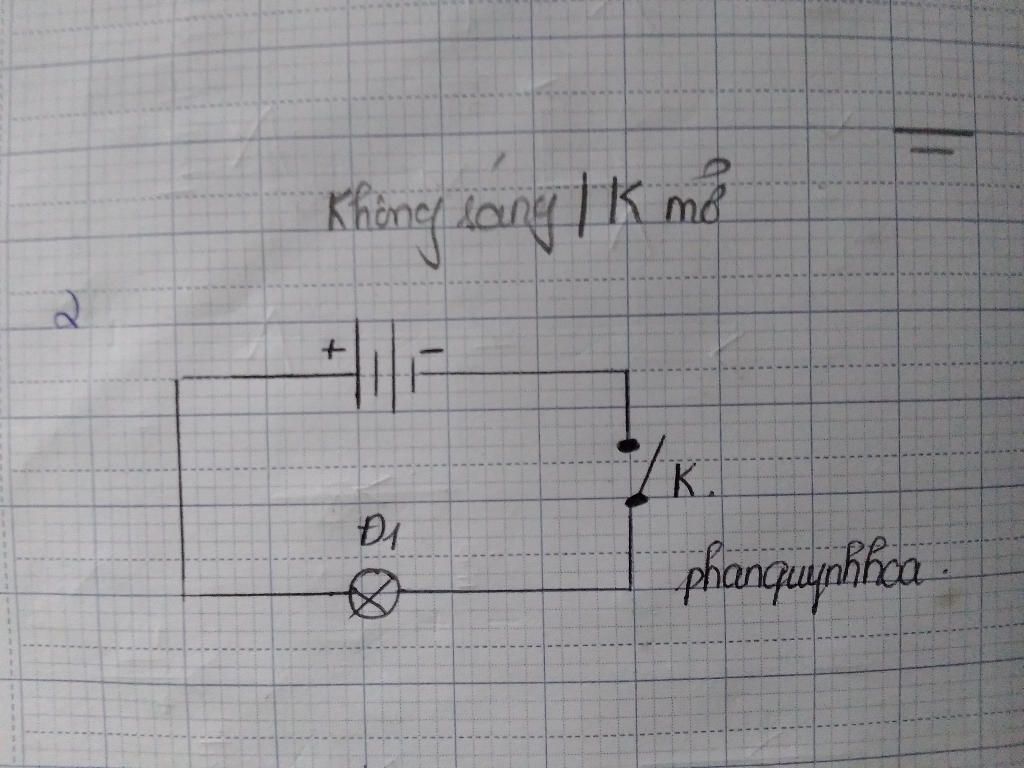 Không sáng / K mở
2
+ -
K.
Đ1
phanquynhhoa.